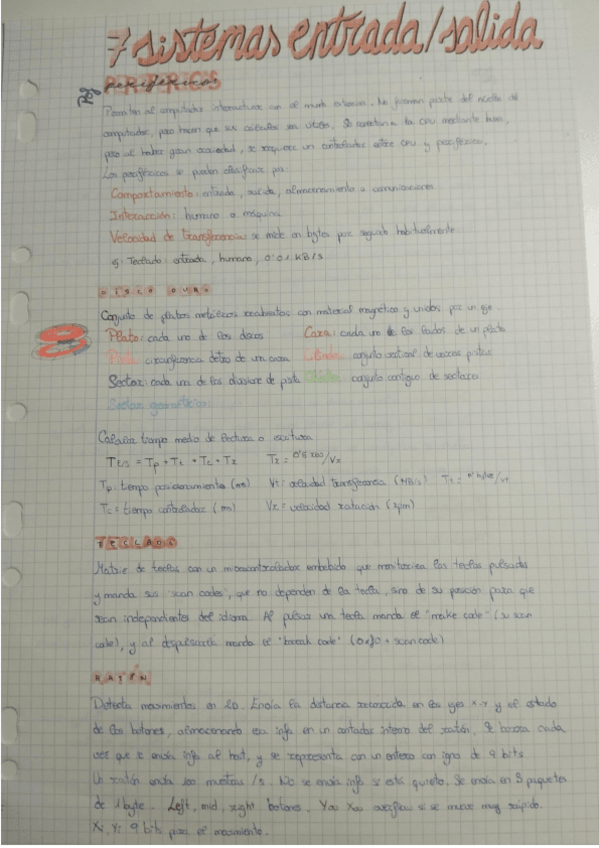 7 sistemas entrada/salida
PERIFERICOS
Permiten al computador interactuar con el mundo exterior. No forman parte del núcleo del
computador, pero hacen que sus cálculos sean útiles. Se conectan a la CPU mediante buses,
pero al haber gran variedad, se requiere un controlador entre CPU y periférico.
Los periféricos se pueden clasificar por:
Comportamiento: entrada, salida, almacenamiento o comunicaciones
Interacción: humano o máquina
Velocidad de transferencia: se mide en bytes por segundo habitualmente.
ej: Teclado: entrada, humano, 0'01 KB/s
DISCO DURO
Conjunto de platos metálicos recubiertos con material magnético y unidos por un eje
Plato: cada uno de los discos Cara: cada uno de los lados de un plato
Pista: circunferencia dentro de una cara Cilindro: conjunto vertical de varias pistas
Sector: cada una de las divisiones de pista conjunto contiguo de sectores
Sector geométrico:
Calcular tiempo medio de lectura o escritura
TL/s = Tp + Tt + Tc + Tr Tr = 0'5 x60/Vr
Tp: tiempo posicionamiento (ms) Vt: velocidad transferencia (MB/s) Tt = nº bytes/vt
Tc = tiempo controlador (ms) Vr = velocidad rotación (rpm)
TECLADO
Matriz de teclas con un microcontrolador embebido que monitoriza las teclas pulsadas
y manda sus "scan codes", que no dependen de la tecla, sino de su posición para que
sean independientes del idioma. Al pulsar una tecla manda el "make code" (su scan
code), y al despulsarla manda el "break code" (0xF0 + scan code)
RATÓN
Detecta movimientos en 2D. Envía la distancia recorrida en los ejes x-y y el estado
de los botones, almacenando esa info en un contador interno del ratón. Se borra cada
vez que se envía info al host, y se representa con un entero con signo de 9 bits
Un ratón envía 100 muestras/s. No se envía info si está quieto. Se envía en 3 paquetes
de 1 byte. Left, mid, right botones. Yov Xov overflow si se mueve muy rápido.
Xi, Yi 9 bits para el movimiento.